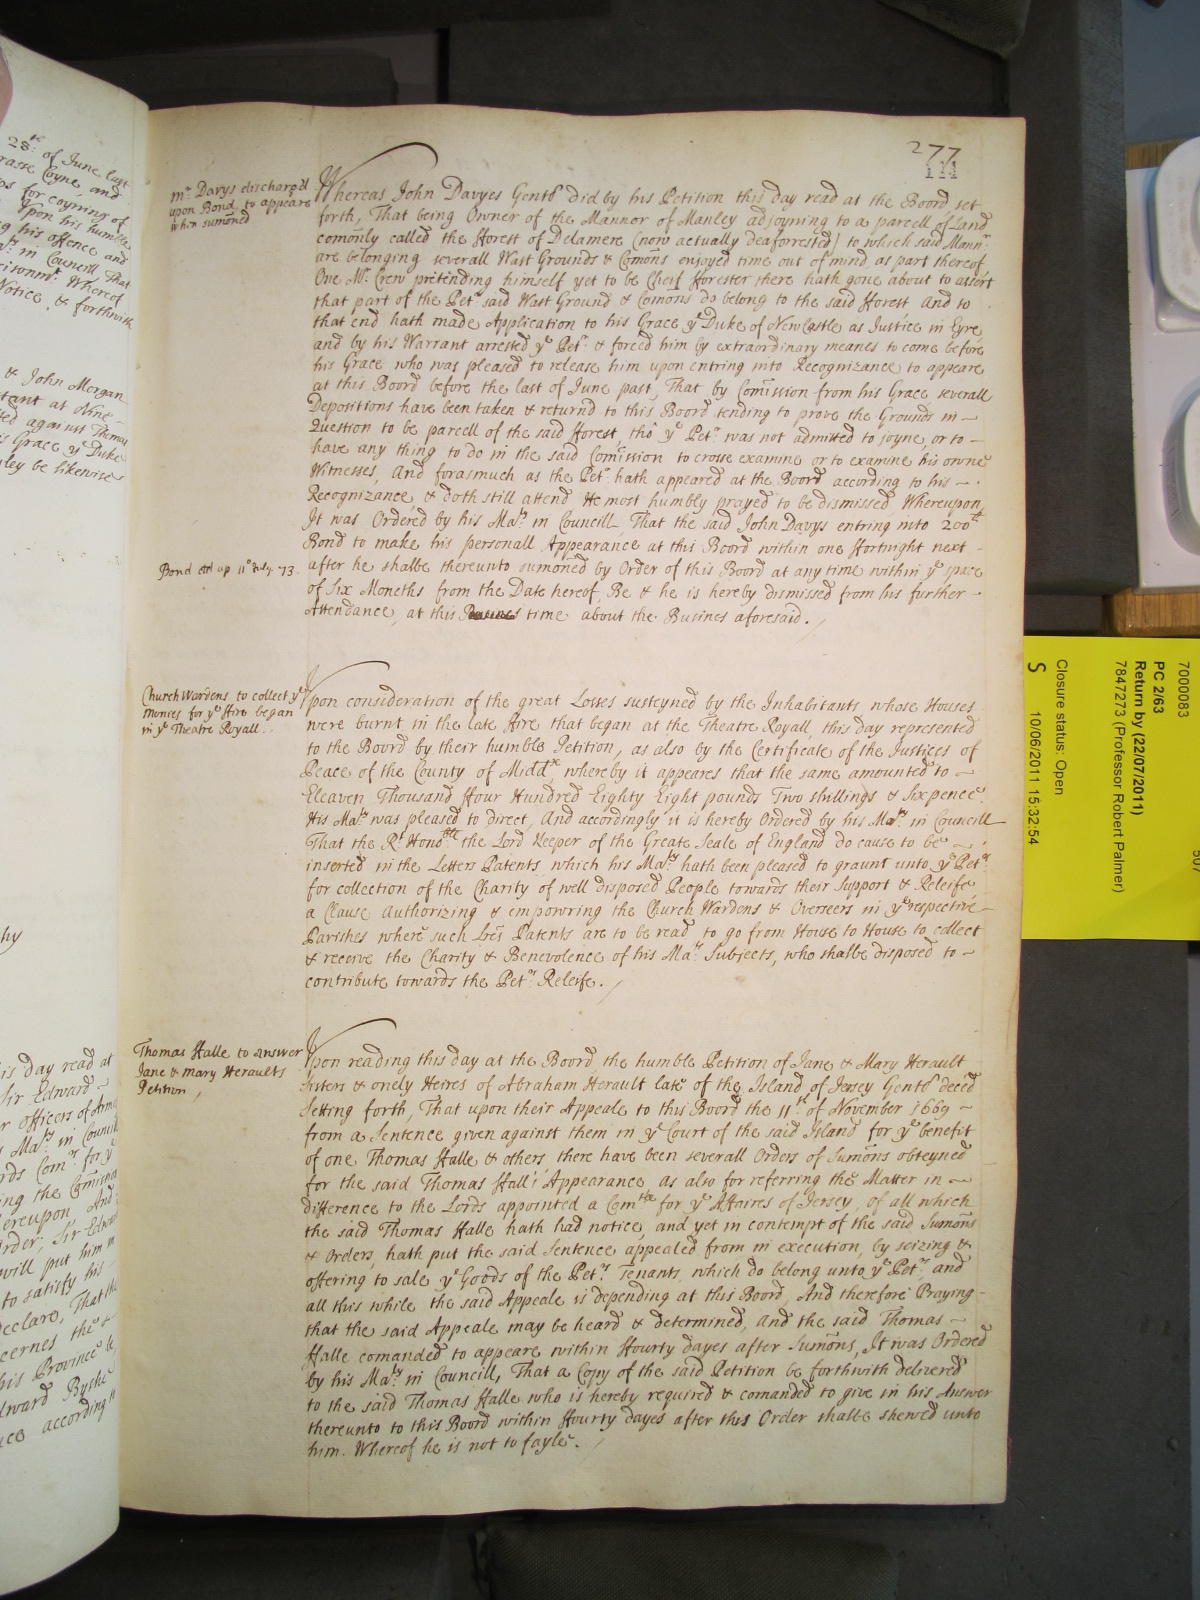 28th of June last
Coyne and
for coyning of
Upon his humble
his offence and
in Councill That
Whereof
Notice, & forthwith
& John Morgan
against Thomas
Grace ye Duke
be likewise
hy
is day read at
Sir Edward
officers of
Ma.ty in Councill
for y
ing the
ereupon And
rder, Sir
will put him in
to satisfy his
declare, That the
cernes the
his Province
dward
according
277
114
mr Davys discharged
upon Bond, to appeare
when sumoned
Whereas John Davyes Gentl did by his Petition this day read at the Board set
forth, That being Owner of the Mannor of Manley adjoyning to a parcell of Land
comonly called the fforest of Delamere (now actually deafforrested) to which said Mannr
are belonging severall Wast Grounds & Comons enjoyed time out of mind, as part thereof
One Mr. Crew pretending himself yet to be Cheif fforester there hath gone about to assert
that part of the Petrs said Wast Ground & Comons do belong to the said fforest And to
that end hath made Application to his Grace ye Duke of NewCastle as Justice in Eyre
and by his Warrant arrested ye Petr. & forced him by extraordinary meanes to come before
his Grace who was pleased to release him upon entring into Recognizance to appeare
at this Board before the last of June past, That by Comission from his Grace severall
Depositions have been taken & returnd to this Board tending to prove the Grounds in
Question to be parcell of the said fforest, tho ye Petr. was not admitted to joyne, or to
have any thing to do in the said Comission to crosse examine or to examine his owne
Witnesses, And forasmuch as the Petr. hath appeared at the Board according to his
Recognizance & doth still attend He most humbly prayed to be dismissed, Whereupon
It was Ordered by his Ma.ty in Councill, That the said John Davys entring into 200li
Bond to make his personall Appearance at this Board within one ffortnight next
Bond up 11o July 73.
after he shalbe thereunto sumoned by Order of this Board at any time within ye space
of Six Moneths from the Date hereof, Be & he is hereby dismissed from his further
Attendance, at this time about the Busines aforesaid.
Church Wardens to collect ye
monies for ye ffire began
in ye Theatre Royall.
Upon consideration of the great Losses susteyned by the Inhabitants, whose Houses
were burnt in the late ffire that began at the Theatre Royall, this day represented
to the Board by their humble Petition, as also by the Certificate of the Justices of
Peace of the County of Middx, whereby it appeares that the same amounted to
Eleaven Thousand ffour Hundred Eighty Eight pounds Two shillings & Six pence.
His Ma.ty was pleased to direct, And accordingly it is hereby Ordered by his Ma.ty in Councill
That the Rt. Honoble the Lord Keeper of the Greate Seale of England do cause to be
inserted in the Letters Patents, which his Ma.ty hath been pleased to graunt unto ye Petrs
for collection of the Charity of well disposed People towards their Support & Releife
a Clause Authorizing & empowring the Church Wardens & Overseers in ye respective
Parishes where such Lres Patents are to be read, to go from House to House to collect
& receive the Charity & Benevolence of his Ma.ts Subjects, who shalbe disposed to
contribute towards the Petrs. Releife.
Thomas Halle to answer
Jane & Mary Heraults
Petition,
Upon reading this day at the Board, the humble Petition of Jane & Mary Herault
Sisters & onely Heires of Abraham Herault late of the Island of Jersey Gentl deced
Setting forth, That upon their Appeale to this Board the 11th of November 1669
from a Sentence given against them in ye Court of the said Island for ye benefit
of one Thomas Halle & others there have been severall Orders of Sumons obteyned
for the said Thomas Hall's Appearance, as also for referring the Matter in
difference to the Lords appointed a Comttee for ye Affaires of Jersey, of all which
the said Thomas Halle hath had notice, and yet in contempt of the said Sumons
& Orders, hath put the said Sentence appealed from in execution, by seizing &
offering to sale ye Goods of the Petrs. Tenants, which do belong unto ye Petrs. and
all this while the said Appeale is depending at this Board, And therefore Praying
that the said Appeale may be heard & determined, And the said Thomas
Halle comanded to appeare within ffourty dayes after Sumons, It was Ordered
by his Ma.ty in Councill, That a Copy of the said Petition be forthwith delivered
to the said Thomas Halle who is hereby required & comanded to give in his Answer
thereunto to this Board within ffourty dayes after this Order shalbe shewed unto
him. Whereof he is not to fayle.
7000083
PC 2/63
Return by (22/07/2011)
7847273 (Professor Robert Palmer)
Closure status: Open
S 10/06/2011 15:32:54